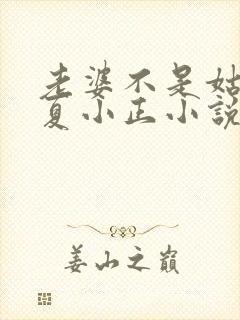 老婆不是姑
夏小正小說
姜山之巔